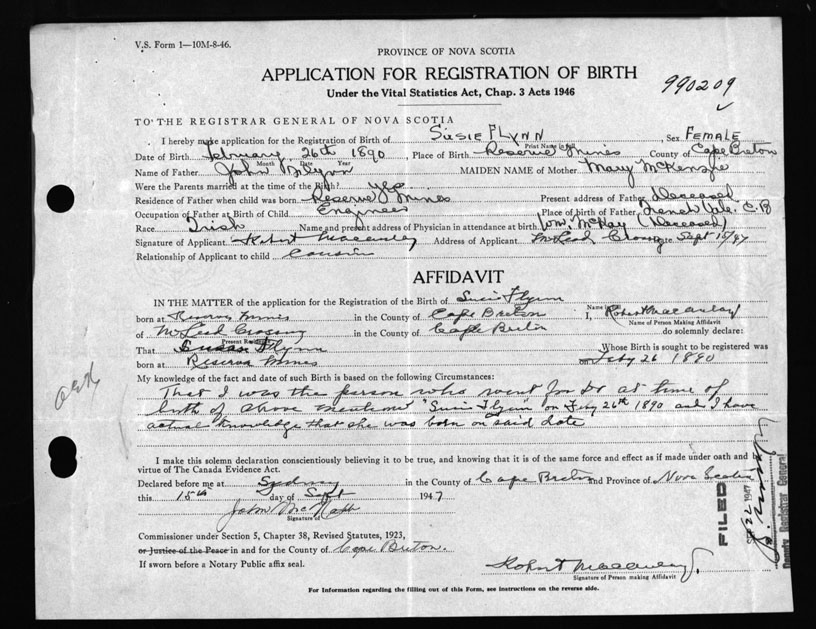 V.S. Form 1—10M-8-46.
PROVINCE OF NOVA SCOTIA
APPLICATION FOR REGISTRATION OF BIRTH
Under the Vital Statistics Act, Chap. 3 Acts 1946
990209
TO THE REGISTRAR GENERAL OF NOVA SCOTIA
I hereby make application for the Registration of Birth of SUSIE FLYNN Sex FEMALE
Print Name in full
Date of Birth February 26th 1890, Place of Birth Reserve Mines County of Cape Breton
Month Date Year
Name of Father John Flynn MAIDEN NAME of Mother Mary McKenzie
Were the Parents married at the time of the Birth? yes
Residence of Father when child was born Reserve Mines Present address of Father Deceased
Occupation of Father at Birth of Child Engineer Place of birth of Father French Vale. C.B
Race Irish Name and present address of Physician in attendance at birth Wm. McKay (Deceased)
Signature of Applicant Robert Macaulay Address of Applicant McLeod Crossing Sept 15/47
Relationship of Applicant to child Cousin
AFFIDAVIT
IN THE MATTER of the application for the Registration of the Birth of Susie Flynn
born at Reserve Mines in the County of Cape Breton I, Robert Macaulay
Name of Person Making Affidavit
of McLeod Crossing in the County of Cape Breton do solemnly declare:
Present Residence
That Susan Flynn Whose Birth is sought to be registered was
born at Reserve Mines on Feby 26 1890
My knowledge of the fact and date of such Birth is based on the following Circumstances:
That I was the person who went for Dr at time of
birth of above mentioned "Susie Flynn" on Feby 26th 1890 and I have
actual knowledge that she was born on said date
I make this solemn declaration conscientiously believing it to be true, and knowing that it is of the same force and effect as if made under oath and by
virtue of The Canada Evidence Act.
Declared before me at Sydney in the County of Cape Breton and Province of Nova Scotia
this 15th day of Sept 1947
John McNabb
Signature of
Commissioner under Section 5, Chapter 38, Revised Statutes, 1923,
or Justice of the Peace in and for the County of Cape Breton.
If sworn before a Notary Public affix seal.
Robert Macaulay.
Signature of Person making Affidavit
For Information regarding the filling out of this Form, see instructions on the reverse side.
FILED
SEP 22 1947
Deputy Registrar General